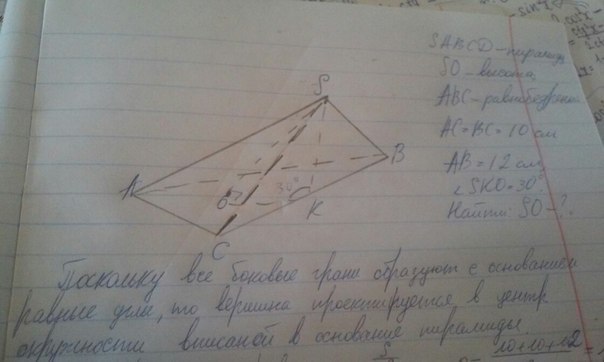 SABCD - пирамид
SO - высота
ABC - равнобедренн
AC = BC = 10 см
AB = 12 см
∠SKO = 30°
Найти: SO - ?
S
A
B
O
30°
K
C
Поскольку все боковые грани образуют с основанием
равные углы, то вершина проектируется в центр
окружности вписаной в основание пирамиды.
10+10+12